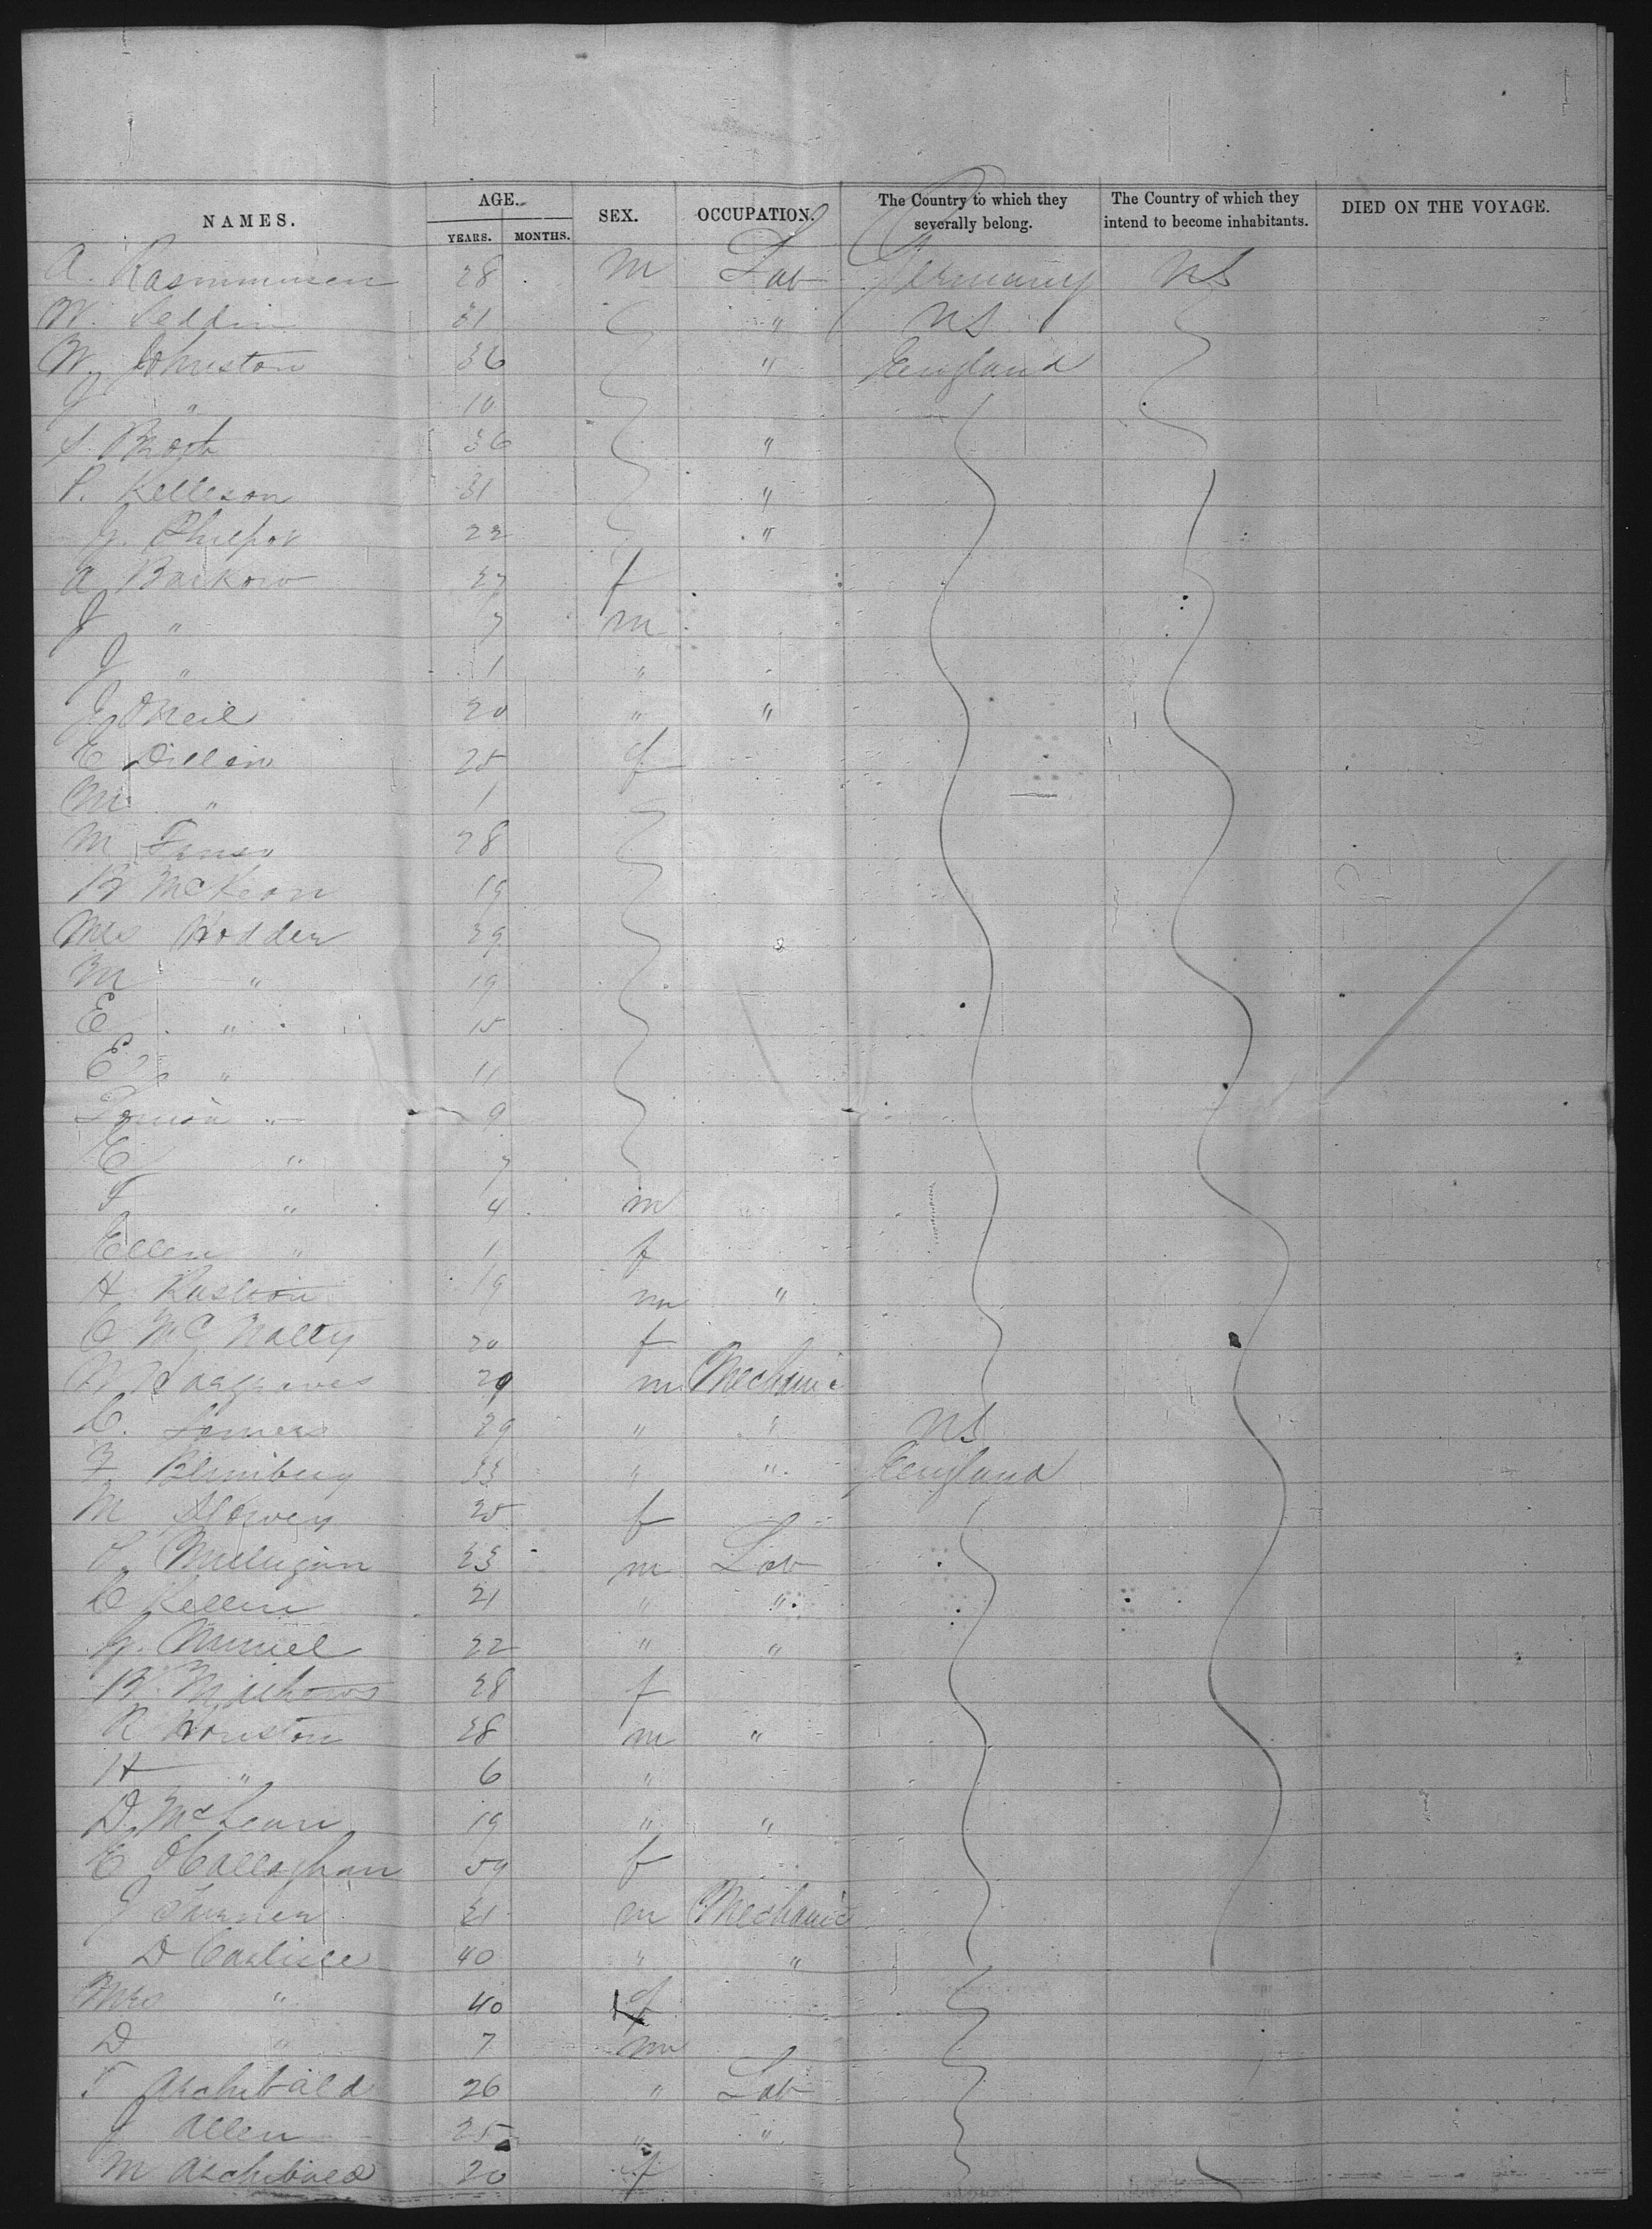 NAMES. AGE. SEX. OCCUPATION. The Country to which they severally belong. The Country of which they intend to become inhabitants. DIED ON THE VOYAGE.
YEARS. MONTHS.
A. Rasmmusen 28 m Lab Germany US
W. Seddin 31 " US
W. Johnston 36 " England
J " 10
36 "
P. Kelleson 31 "
J. Philpot 22 "
A Barkow 27 f
J " 7 m
J " 1 "
J. O'Neil 20 " "
E Dillon 25 f
M " 1
M 28
B McKeon 19
Mrs Hodder 39
M " 19
E " 15
E " 11
Louisa " 9
E " 7
F " 4 m
Ellen " 1 f
H 19 m "
C McNally 20 f
Hargraves 29 m Mechanic
C. Somers 29 " " US
F. 33 " " England
M 25 f
P. Mulligan 23 m Lab
C 21 " "
J. 22 " "
B. 28 f
R Houston 28 m "
H " 6 "
D. McLean 19 " "
E O'Callaghan 59 f
J Turner 31 m Mechanic
D Carlisle 40 " "
Mrs " 40 f
D " 7 m
T Archibald 26 " Lab
J Allen 25 " "
M Archibald 20 f